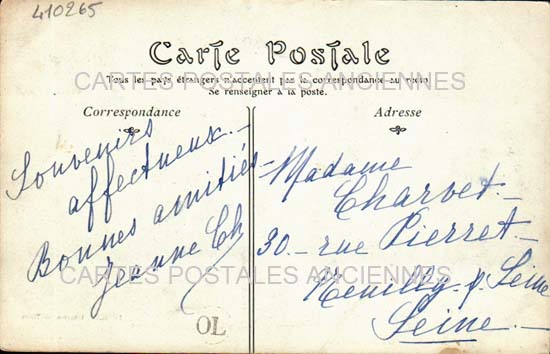 410265
Carte Postale
Tous les pays étrangers n'acceptent pas la correspondance au recto
Se renseigner à la poste.
CARTES POSTALES ANCIENNES
Correspondance
Souvenirs
affectueux.-
Bonnes amitiés
Jeanne Ch
Adresse
Madame
Charvet-
30.- rue Pierret-
Neuilly s. Seine
Seine.-
CARTES POSTALES ANCIENNES
OL